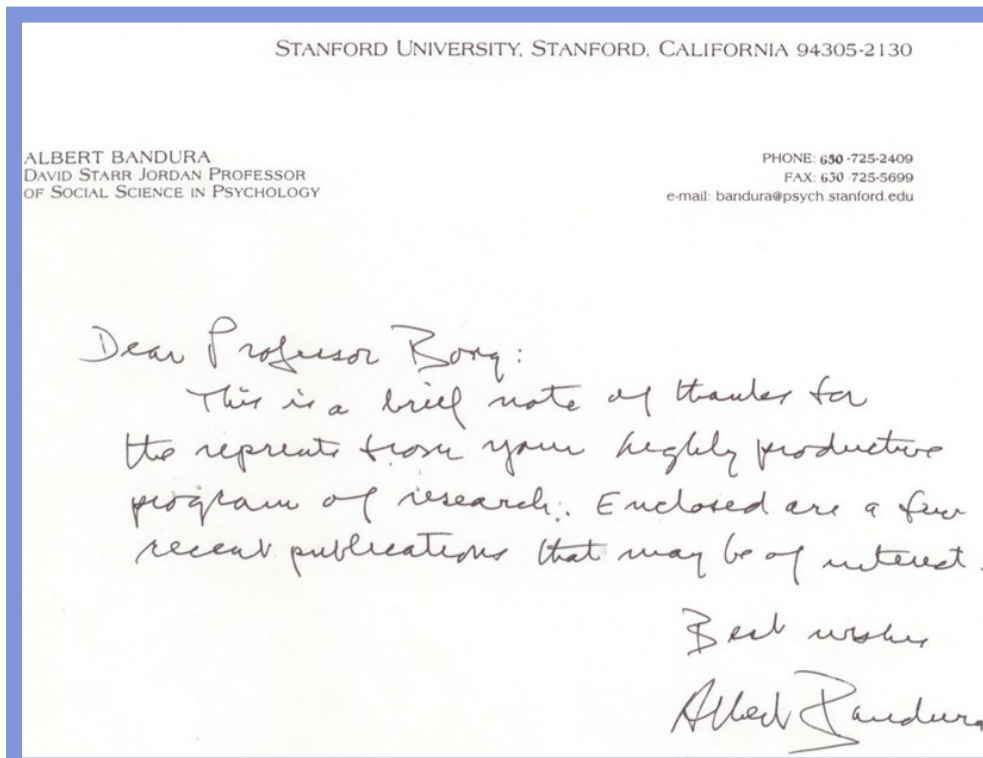 STANFORD UNIVERSITY, STANFORD, CALIFORNIA 94305-2130
ALBERT BANDURA
DAVID STARR JORDAN PROFESSOR
OF SOCIAL SCIENCE IN PSYCHOLOGY
PHONE: 650-725-2409
FAX: 650-725-5699
e-mail: bandura@psych.stanford.edu
Dear Professor Borg:
This is a brief note of thanks for
the reprints from your highly productive
program of research. Enclosed are a few
recent publications that may be of interest.
Best wishes
Albert Bandura